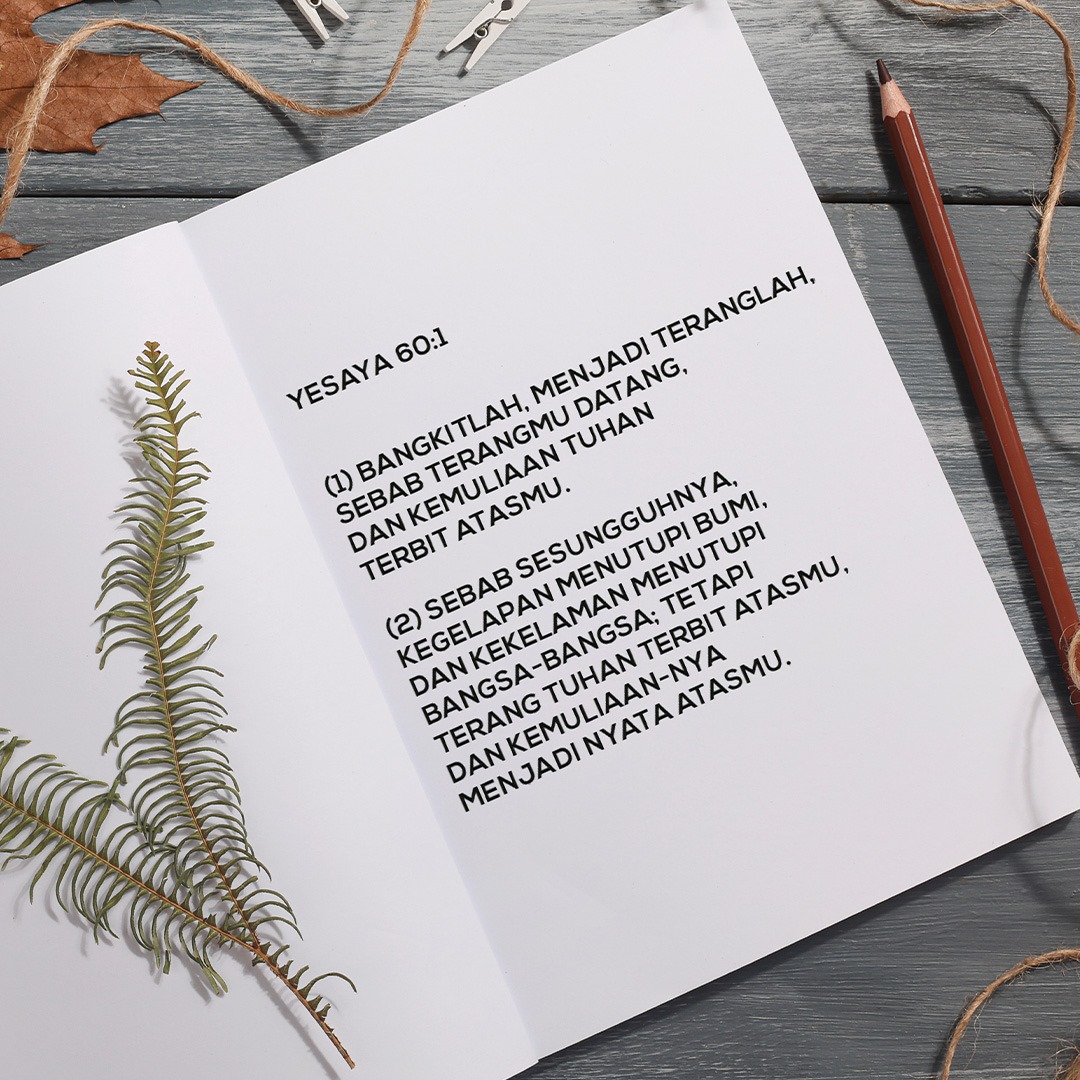 YESAYA 60:1
(1) BANGKITLAH, MENJADI TERANGLAH,
SEBAB TERANGMU DATANG,
DAN KEMULIAAN TUHAN
TERBIT ATASMU.
(2) SEBAB SESUNGGUHNYA,
KEGELAPAN MENUTUPI BUMI,
DAN KEKELAMAN MENUTUPI
BANGSA-BANGSA; TETAPI
TERANG TUHAN TERBIT ATASMU,
DAN KEMULIAAN-NYA
MENJADI NYATA ATASMU.